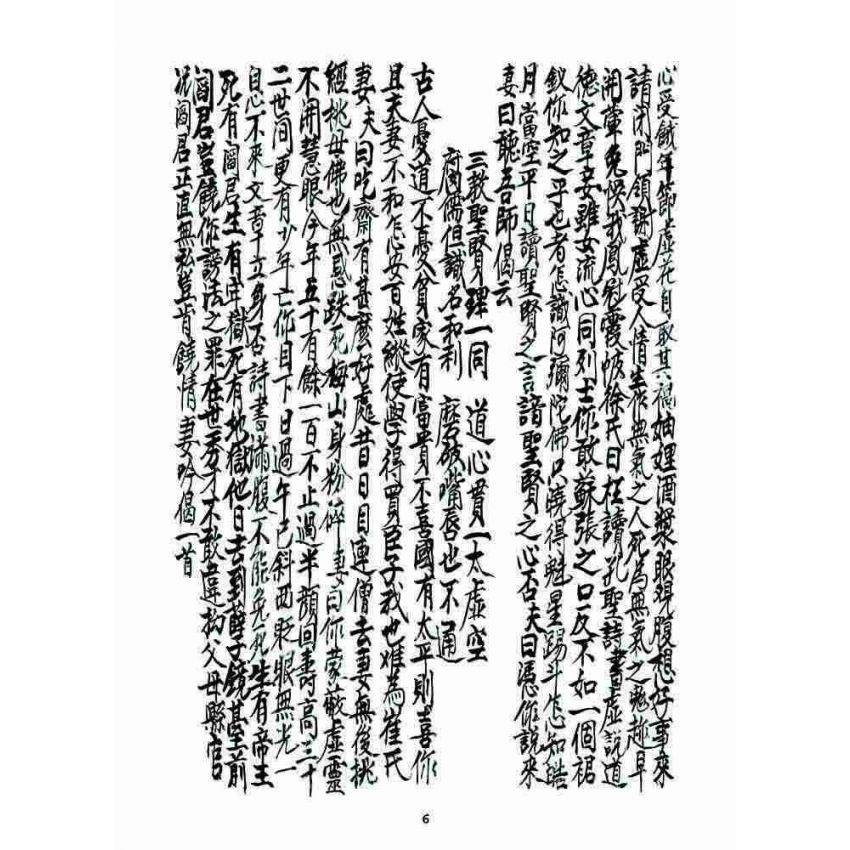 心受餓年節虛花自取其禍妯娌酒漿眼覌腹想好事來
請閉門領謝虛受人情生作無氣之人死為無氣之鬼趂早
開葷免悞我鳳慰霞帔徐氏曰枉讀孔聖詩書虛說道
德文章妾雖女流心同列士你敢蘇張之口反不如一個裙
釵你知之乎也者怎識阿彌陀佛只曉得魁星踢斗怎知皓
月當空平日讀聖賢之言諳聖賢之心否夫曰憑你說來
妻曰聽吾師偈云
三教聖賢理一同　道心貫一太虛空
腐儒但識名和利　磨破嘴唇也不通
古人憂道不憂貧家有富貴不喜國有太平則喜你
且夫妻不和怎安百姓縱使學得買臣子我也难為崔氏
妻夫曰吃齋有甚麽好處昔日目連僧去妻無後挑
經挑母佛也無感跌死梅山身粉碎妻曰你蒙蔽虛靈
不開慧眼今年五十有餘一百不止過半顏回壽高三十
二世间更有少年亡你目下日過午已斜西眨眼無光一
自心不來文章立身否詩書满腹不能免死生有帝王
死有閻君生有牢獄死有地獄他日去到孽鏡基前
閻君豈饒你謗法之罪在世秀才不敢違拗父母縣官
况阎君正直無私豈肯饒情妻吟偈一首
6